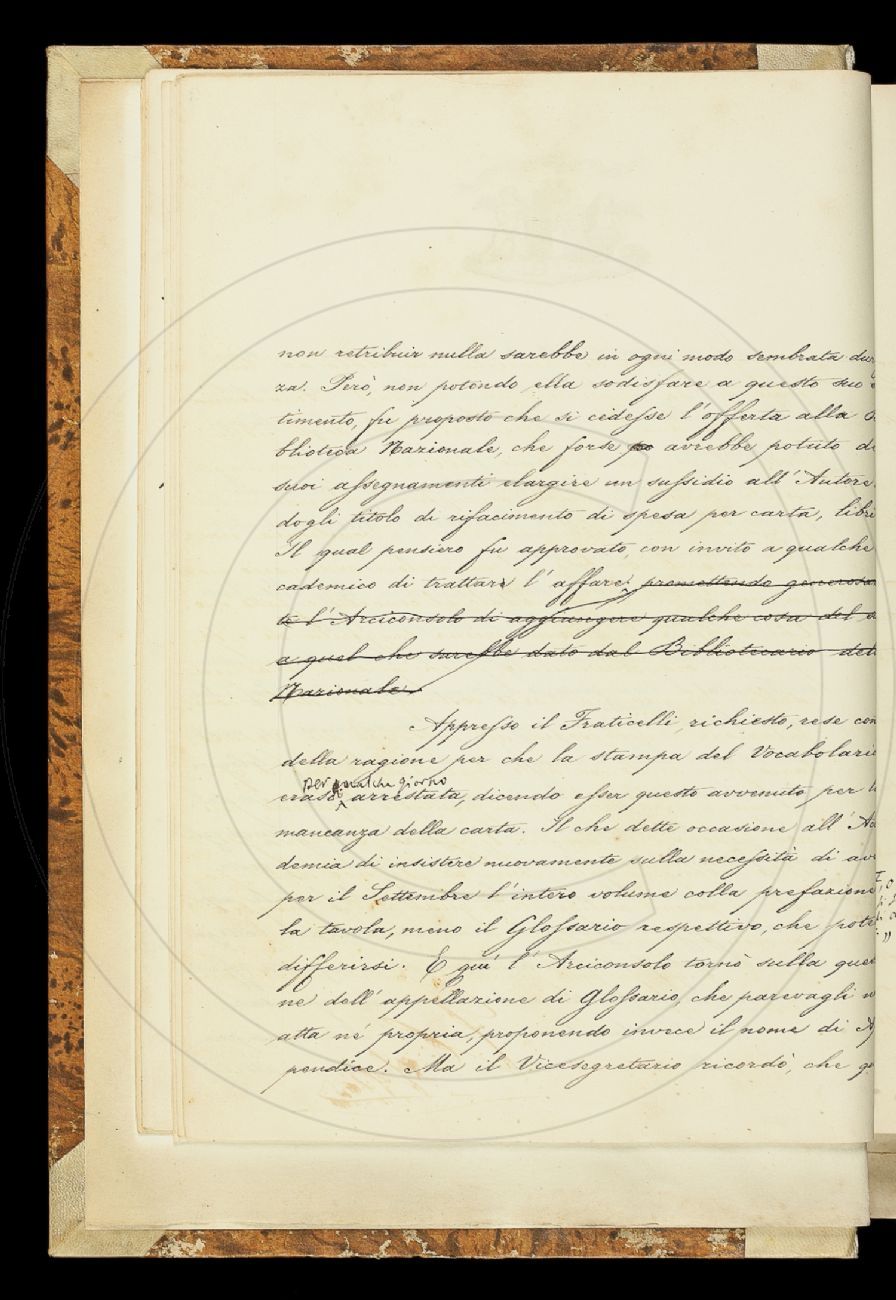 non retribuir nulla sarebbe in ogni modo sembrata dur
za. Però, non potendo ella sodisfare a questo suo
timento, fu proposto che si cedesse l'offerta alla
blioteca Nazionale, che forse avrebbe potuto di
suoi assegnamenti elargire un sussidio all'Autore
dogli titolo di rifacimento di spesa per carta, libri
Il qual pensiero fu approvato, con invito a qualche
cademico di trattare l'affare, promettendo generosa
te l'Arciconsolo di aggiungere qualche cosa del
a quel che sarebbe dato dal Bibliotecario del
Nazionale.
Appresso il Fraticelli, richiesto, rese con
della ragione per che la stampa del Vocabolario
per qualche giorno
erasi arrestata, dicendo esser questo avvenuto per
mancanza della carta. Il che dette occasione all'Ac
demia di insistere nuovamente sulla necessità di av
per il Settembre l'intero volume colla prefazione
la tavola, meno il Glossario respettivo, che pot
differirsi. E quì l'Arciconsolo tornò sulla que
ne dell'appellazione di Glossario, che parevagli n
atta nè propria, proponendo invece il nome di Ap
pendice. Ma il Vicesegretario ricordò, che